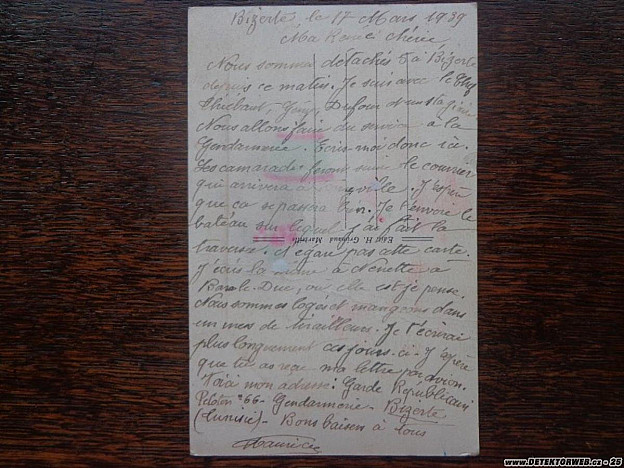 Bizerte, le 17 Mars 1939
Ma Renée chérie
Nous sommes détachés à Bizerte
depuis ce matin. Je suis avec le Chef
Thiebaut, Guy, Dufour et un stagiaire
Nous allons faire du service à la
Gendarmerie. Ecris-moi donc ici.
Les camarades feront suivre le courrier
qui arrivera à J'espère
que ça se passera bien. Je t'envoie le
bateau sur lequel j'ai fait la
traversée. N'égare pas cette carte.
J'écris la même à Nenette à
Bar-le-Duc, où elle est je pense.
Nous sommes logés et mangeons dans
un mess de tirailleurs. Je t'écrirai
plus longuement ces jours-ci. J'espère
que tu as reçu ma lettre par avion.
Voici mon adresse: Garde Républicain
Peloton 66 - Gendarmerie - Bizerte
(Tunisie) - Bons baisers à tous
Maurice
Edit. H. Grimaud Marseille
www.DETEKTORWEB.cz - 25